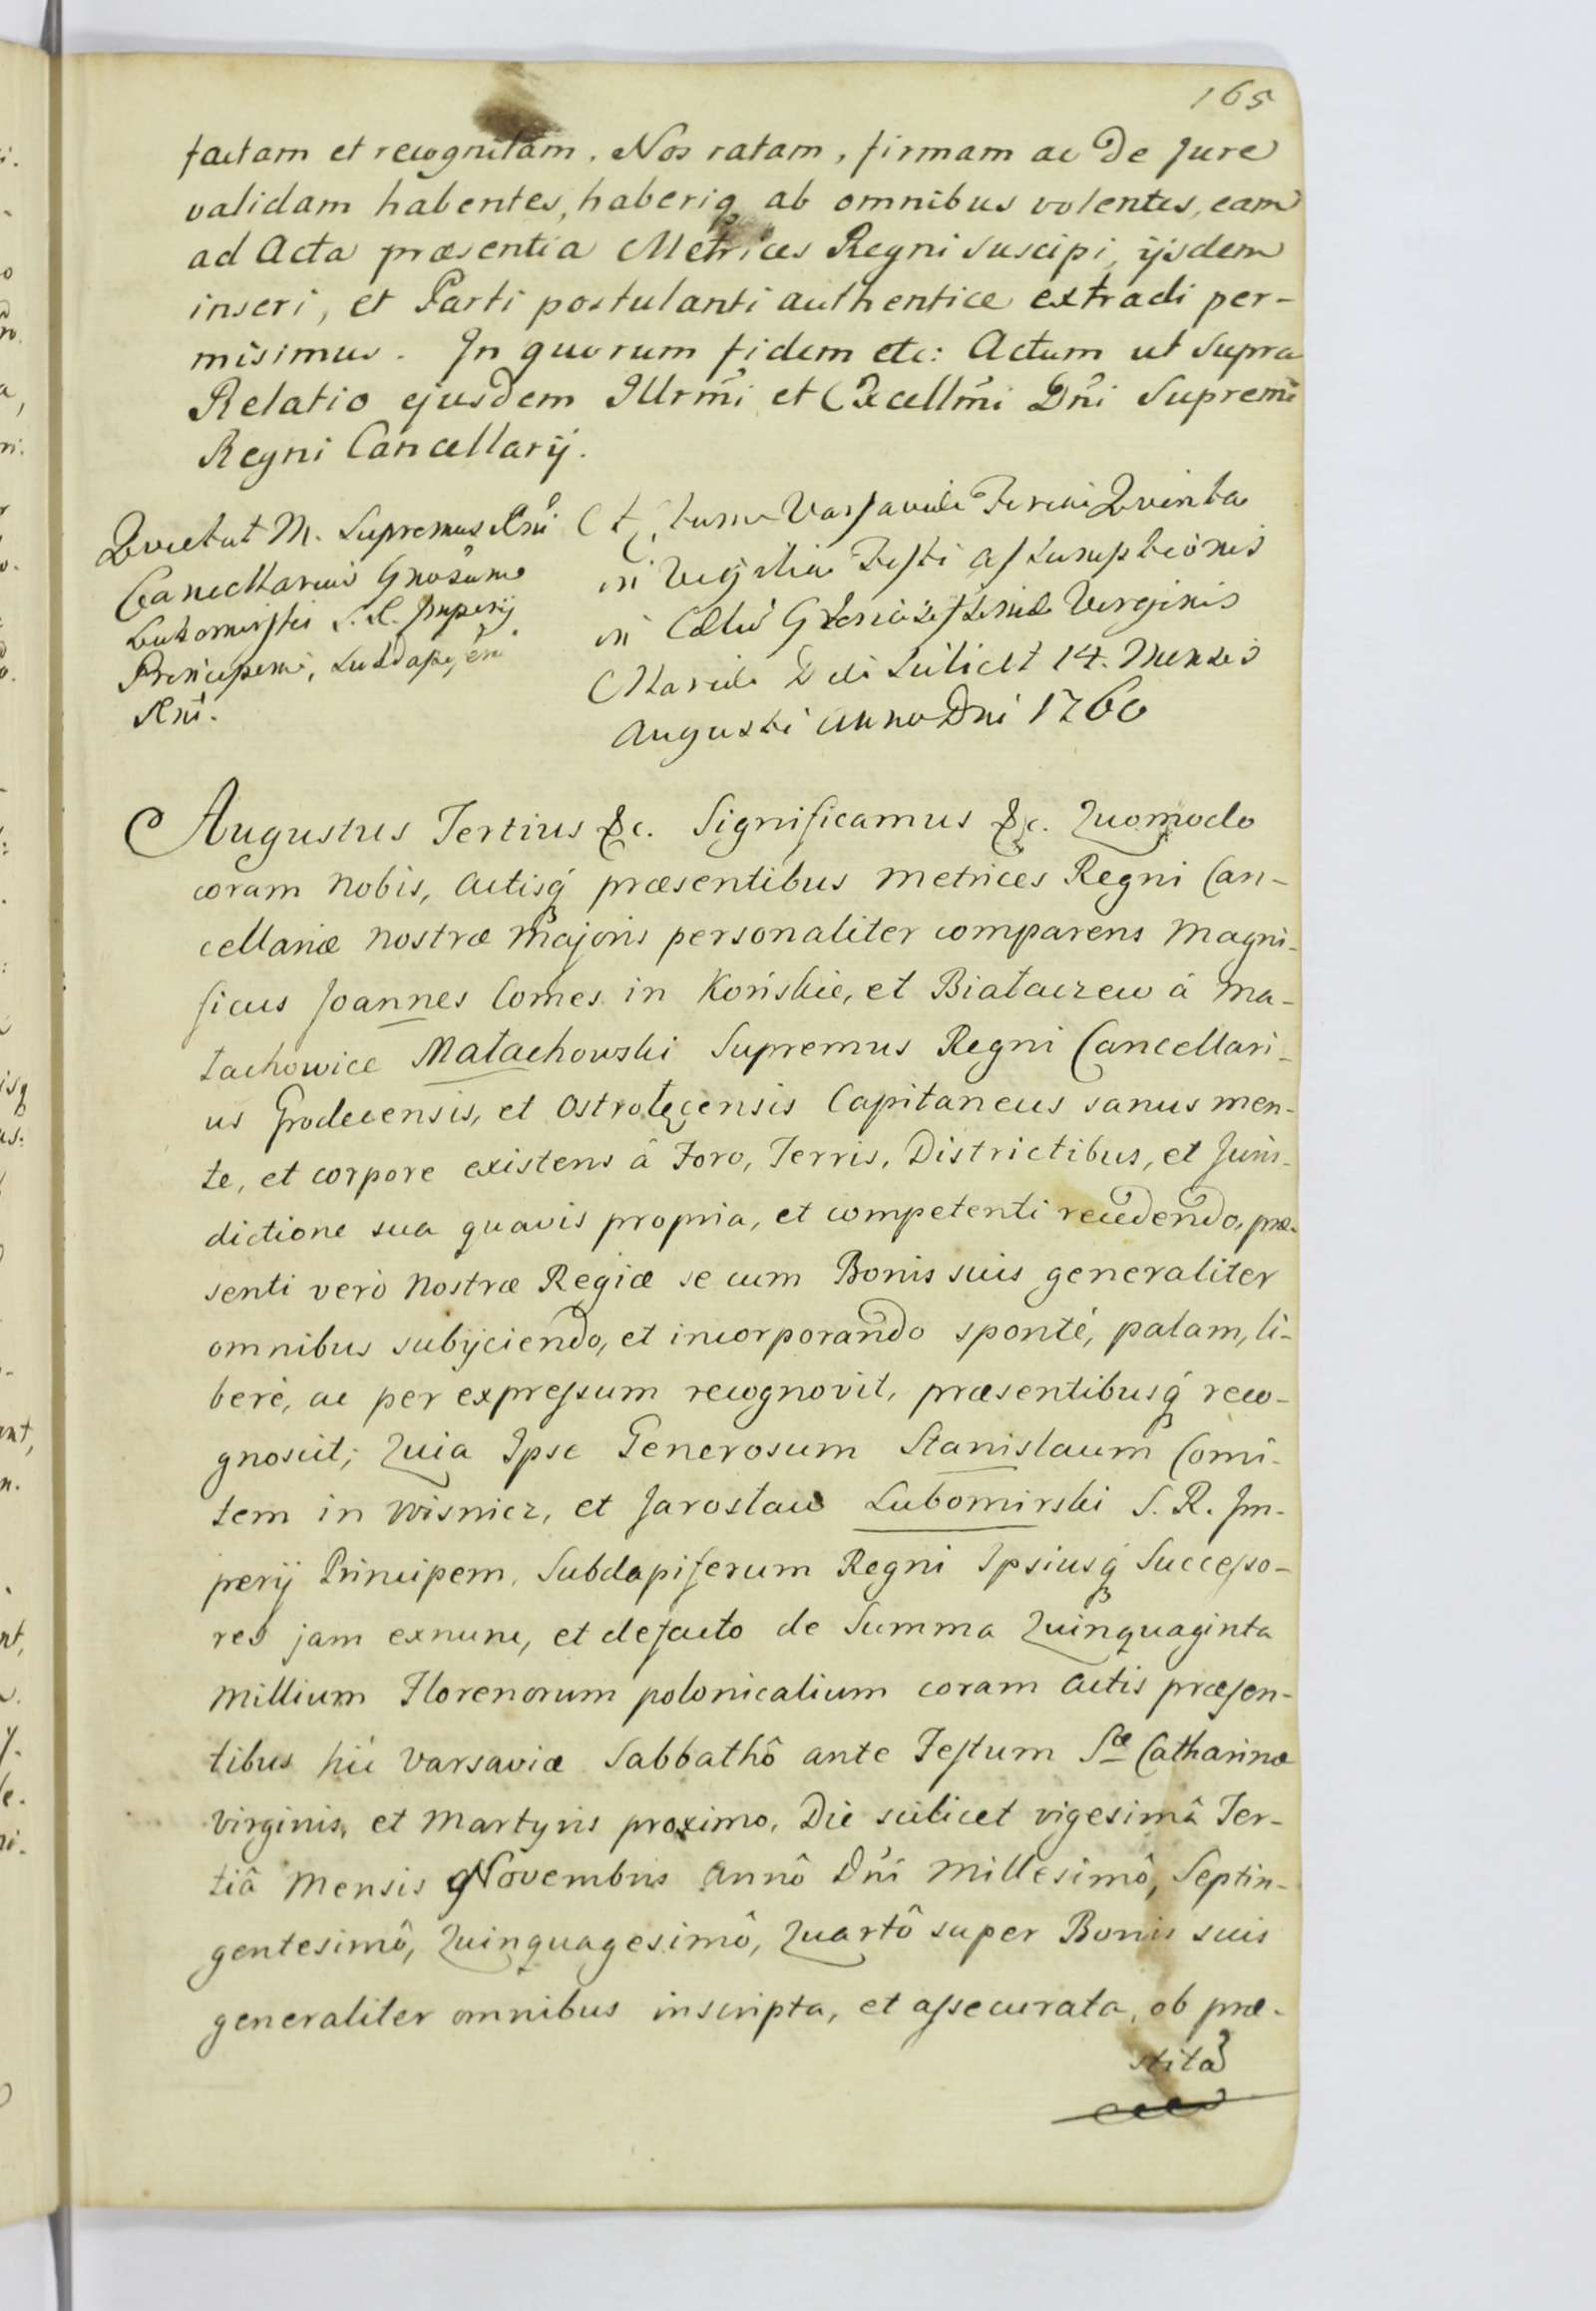 165
factam et recognitam, Nos ratam, firmam ac De Jure
validam habentes, haberiq ab omnibus volentes, eam
ad Acta præsentia Metrices Regni suscipi, ijsdem
inseri, et Parti postulanti authentice extradi per-
misimus. In quorum fidem etc: Actum ut supra
Relatio ejusdem Illrm̃i et Excellm̃i Dñi Supremi
Regni Cancellarij.
Quietat M. Supremus Rni
Cancellarius Gnosum
Lubomirski S. R. Imperij
Principem, Subdapi, em
Rni.
Actum Varsaviæ Feria Quinta
in Vigilia Festi Assumptionis
in Cælũ Gloriosissimæ Virginis
Mariæ Die scilicet 14. Mensis
Augusti Anno Dni 1760
Augustus Tertius &c. Significamus &c. Quomodo
coram Nobis, Actisq́ præsentibus Metrices Regni Can-
cellariæ Nostræ Majoris personaliter comparens Magni-
ficus Joannes Comes in Końskie, et Białaczew á Ma-
łachowice Małachowski Supremus Regni Cancellari-
us Grodecensis, et Ostrołęcensis Capitaneus sanus men-
te, et corpore existens â Foro, Terris, Districtibus, et Juris-
dictione sua quavis propria, et competenti recedendo, præ-
senti verò Nostræ Regiæ se cum Bonis suis generaliter
omnibus subijciendo, et incorporando sponté, palam, li-
beré, ac per expressum recognovit, præsentibusq́ reco-
gnoscit; Quia Ipse Generosum Stanislaum Comi-
tem in Wisnicz, et Jarosław Lubomirski S. R. Im-
perij Principem, Subdapiferum Regni Ipsiusq́ Successo-
res jam exnunc, et defacto de Summa Quinquaginta
Millium Florenorum polonicalium coram Actis præsen-
tibus híc Varsaviæ Sabbathô ante Festum Sæ Catharinæ
Virginis, et Martyris proximo, Die scilicet vigesimâ Ter-
tiâ Mensis Novembris Annô Dñi Millesimô, Septin-
gentesimô, Quinquagesimô, Quartô super Bonis suis
generaliter omnibus inscripta, et assecurata, ob præ-
stita